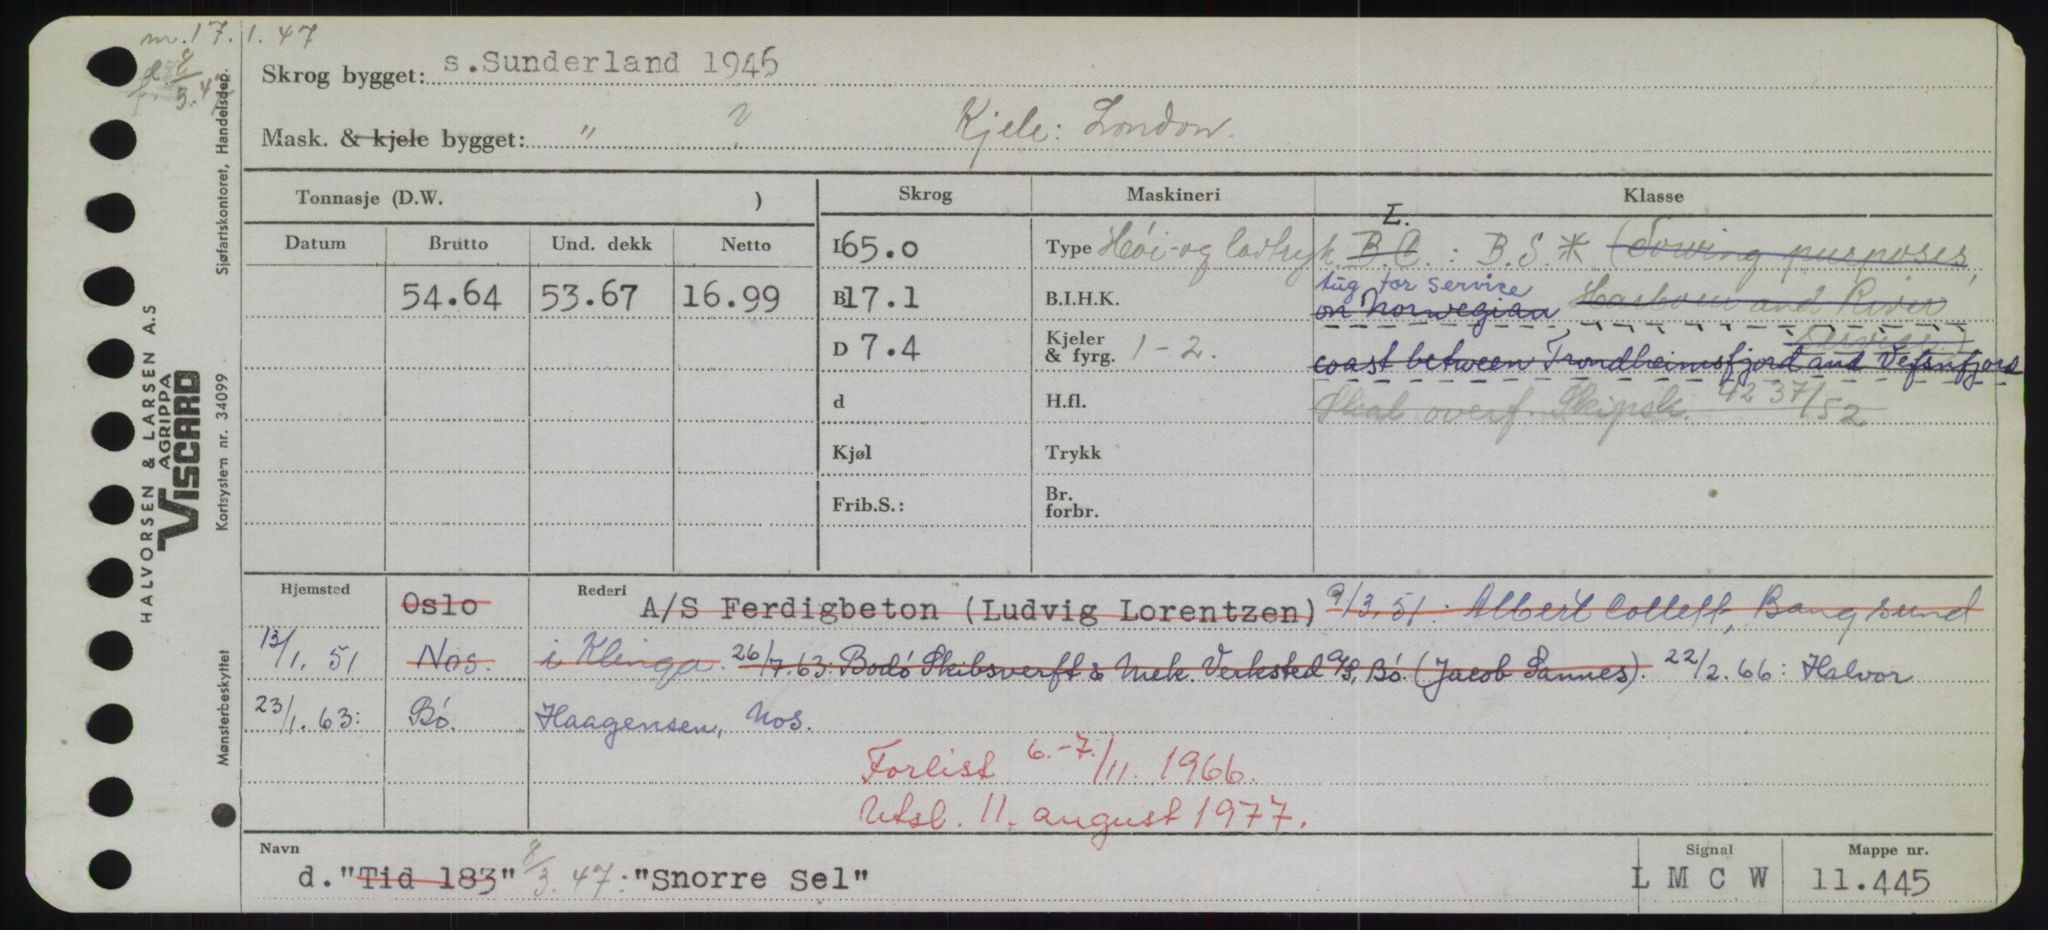 m. 17.1.47
d. 8/3.47
Skrog bygget: s.Sunderland 1945
Mask. & kjele bygget: " " Kjele: London.
Tonnasje (D.W. )
Skrog
Maskineri
Klasse
Datum Brutto Und. dekk Netto
54.64 53.67 16.99
L 65.0
B 17.1
D 7.4
d
Kjøl
Frib.S.:
Type Høi- og lavtryk
B.I.H.K.
Kjeler & fyrg. 1-2.
H.fl.
Trykk
Br. forbr.
L.
B.C. : B.S.* (Towing purposes,
tug for service
on Norwegian Harbour and River
Service)
coast between Trondheimsfjord and Vefsnfjord
Skal overf. Skipsk. 4237/52
Hjemsted Oslo Rederi A/S Ferdigbeton (Ludvig Lorentzen) 9/3.51: Albert Collett, Bangsund
13/1.51 Nos. i Klinga. 26/7.63: Bodö Skibsverft & Mek. Verksted A/S, Bö. (Jacob Sannes). 22/2.66: Halvor
23/1.63: Bö. Haagensen, Nos.
Forlist 6.-7./11. 1966.
Utsl. 11. august 1977.
Navn Signal Mappe nr.
d. "Tid 183" 8/3.47: "Snorre Sel" L M C W 11.445
HALVORSEN & LARSEN A.S
AGRIPPA
VISCARD
Sjøfartskontoret, Handelsdep.
Kortsystem nr. 34099
Mønsterbeskyttet